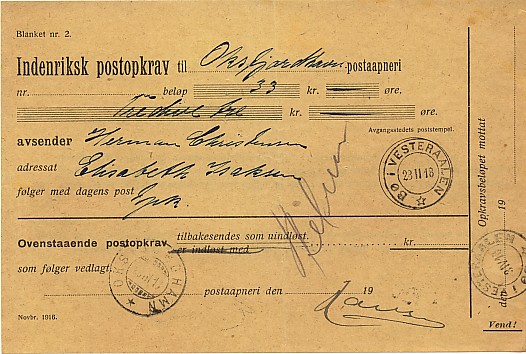 Blanket nr. 2.
Indenriksk postopkrav til Oksfjordhavn postaapneri
nr. beløp 33 kr. øre.
Tredive tre kr. øre.
avsender Herman Christensen
Avgangsstedets poststempel.
adressat Elisabeth Isaksen
følger med dagens post
BØ i VESTERAALEN
23 II 18
Ovenstaaende postopkrav tilbakesendes som uindløst. kr.
er indløst med
som følger vedlagt.
postaapneri den 19
Hansen
Novbr. 1916.
Opkrævsbeløpet mottat
den 19
Vend!